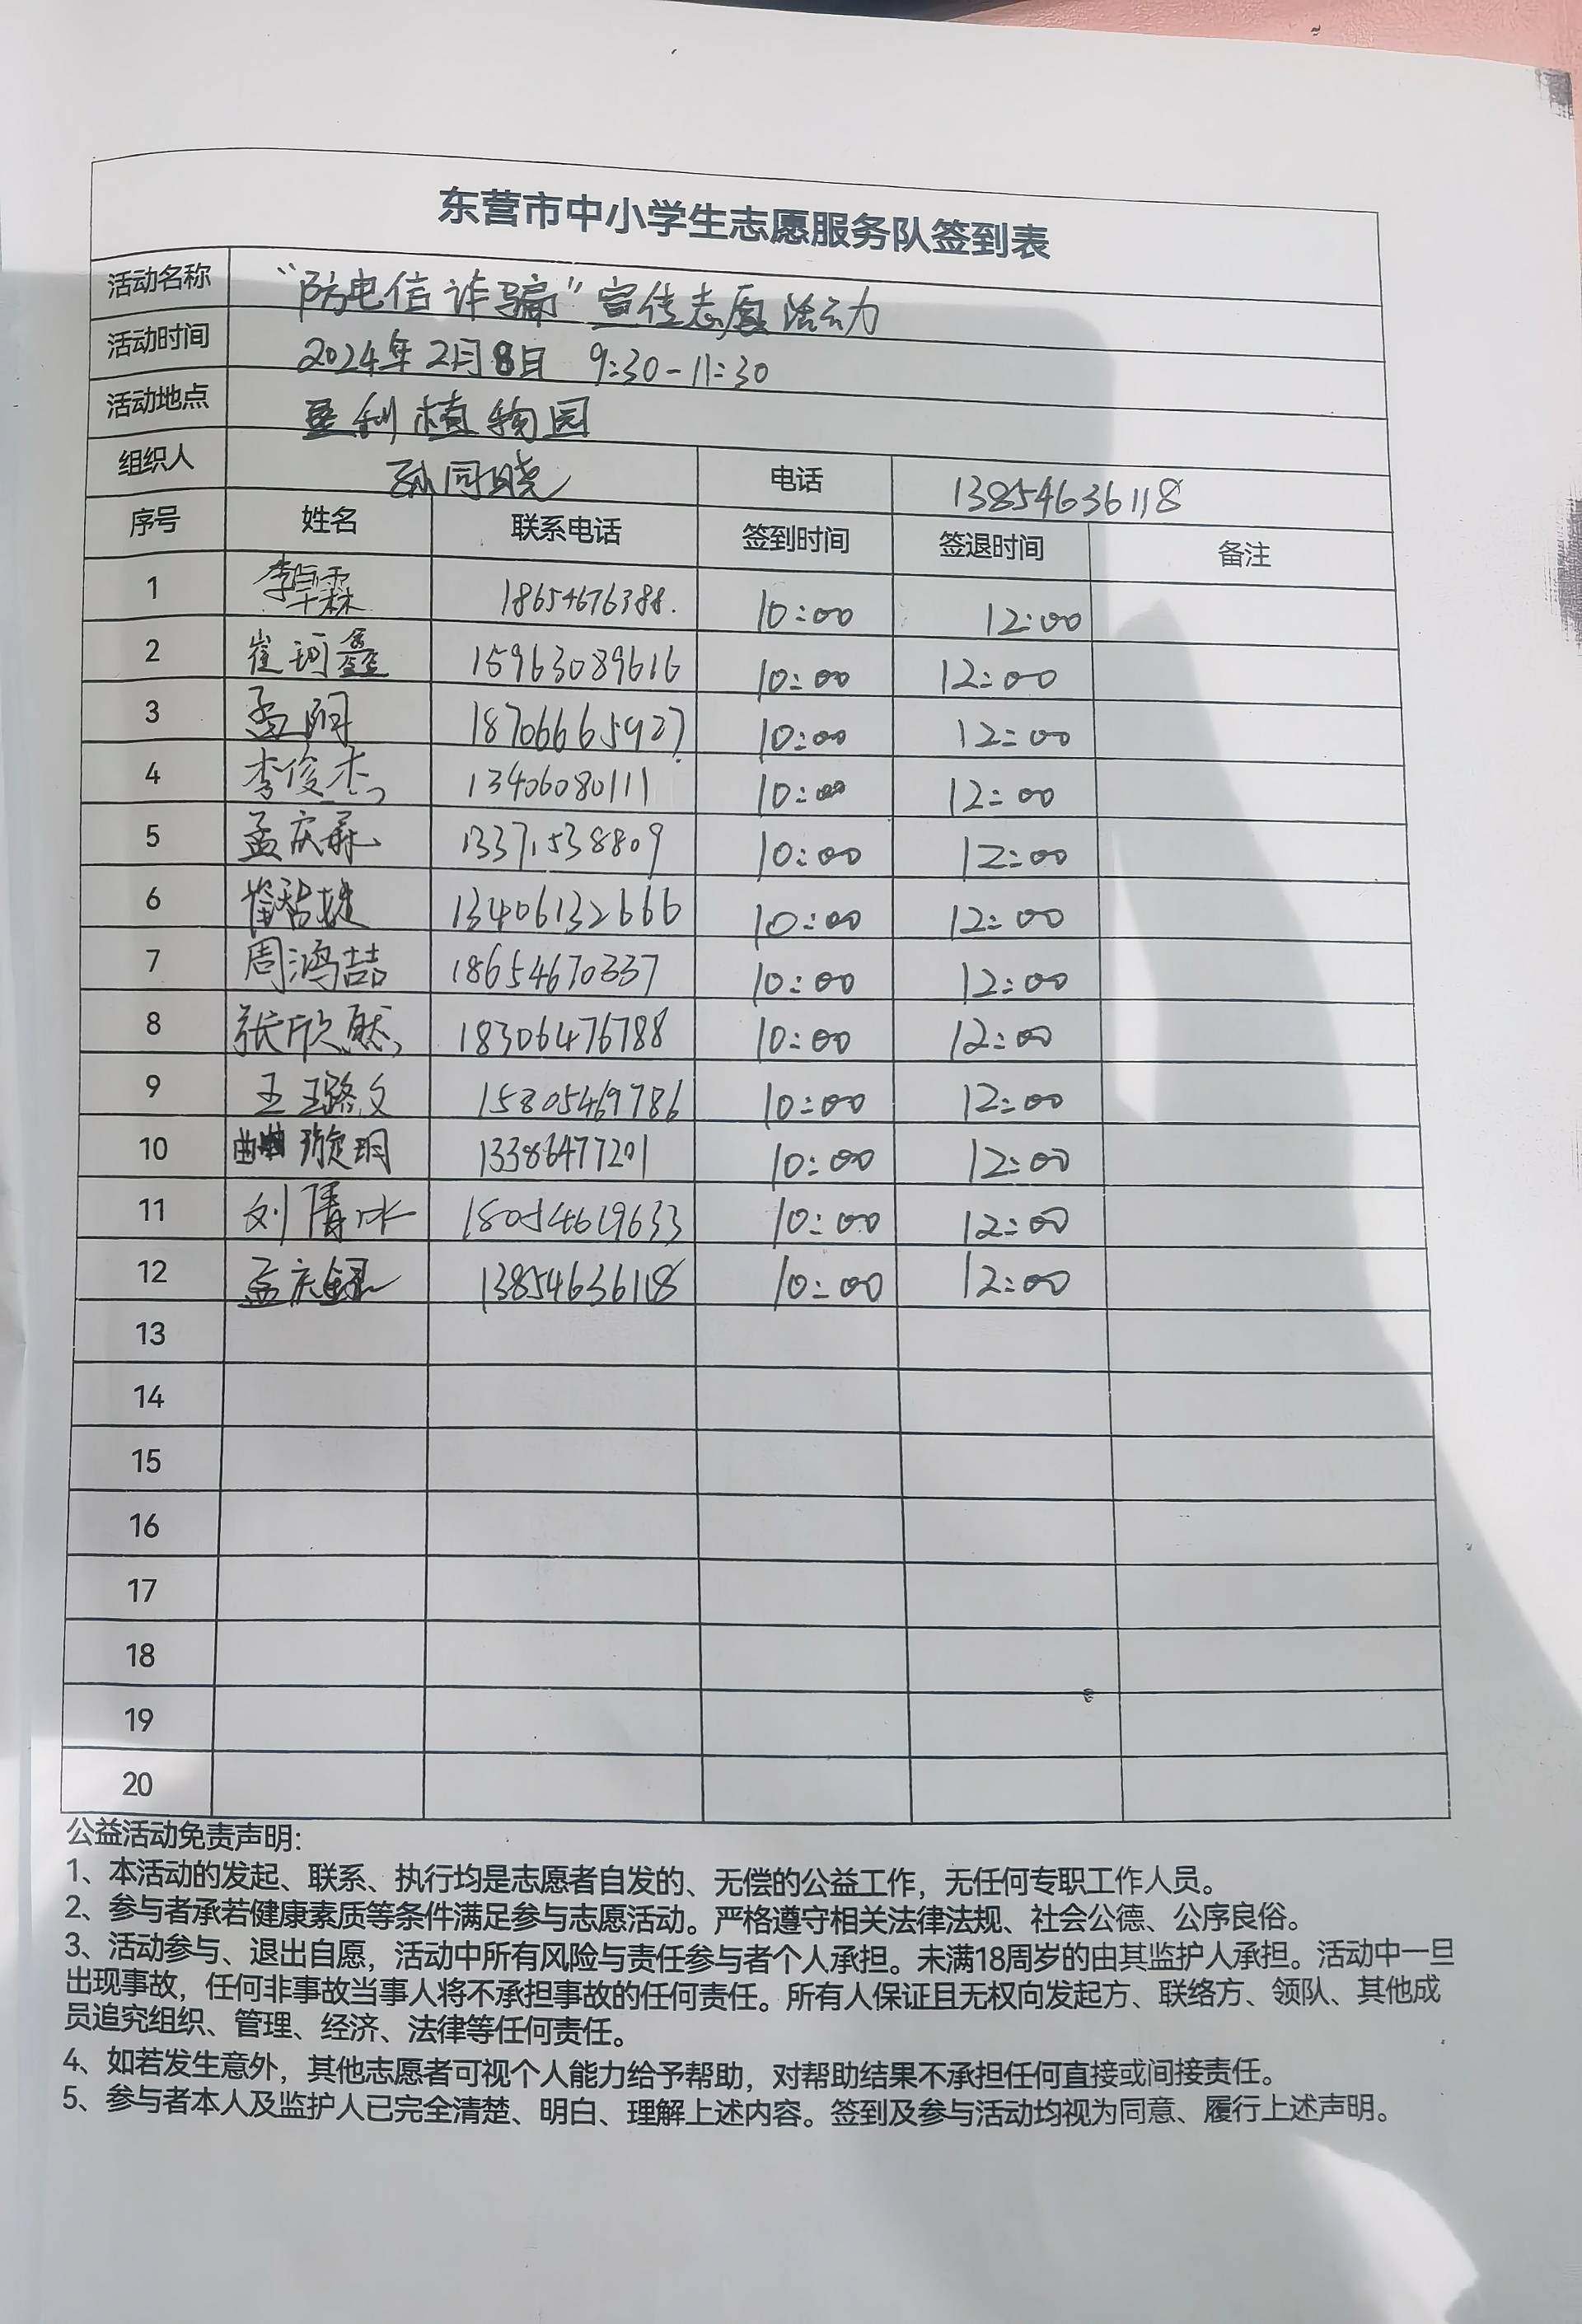 东营市中小学生志愿服务队签到表
活动名称 "防电信诈骗"宣传志愿活动
活动时间 2024年2月8日 9:30-11:30
活动地点 垦利植物园
组织人 孙同晓 电话 13854636118
序号 姓名 联系电话 签到时间 签退时间 备注
1 李卓霖 18654676388. 10:00 12:00
2 崔珂鑫 15963089616 10:00 12:00
3 孟 18706665927 10:00 12:00
4 李俊杰 13406080111 10:00 12:00
5 孟庆霖 13371538809 10:00 12:00
6 崔智捷 13406132666 10:00 12:00
7 周鸿喆 18654670337 10:00 12:00
8 张欣然 18306476788 10:00 12:00
9 王璐文 15805469786 10:00 12:00
10 曲璇玥 13386477201 10:00 12:00
11 刘清冰 18054619633 10:00 12:00
12 孟庆 13854636118 10:00 12:00
13
14
15
16
17
18
19
20
公益活动免责声明:
1、本活动的发起、联系、执行均是志愿者自发的、无偿的公益工作，无任何专职工作人员。
2、参与者承若健康素质等条件满足参与志愿活动。严格遵守相关法律法规、社会公德、公序良俗。
3、活动参与、退出自愿，活动中所有风险与责任参与者个人承担。未满18周岁的由其监护人承担。活动中一旦
出现事故，任何非事故当事人将不承担事故的任何责任。所有人保证且无权向发起方、联络方、领队、其他成
员追究组织、管理、经济、法律等任何责任。
4、如若发生意外，其他志愿者可视个人能力给予帮助，对帮助结果不承担任何直接或间接责任。
5、参与者本人及监护人已完全清楚、明白、理解上述内容。签到及参与活动均视为同意、履行上述声明。